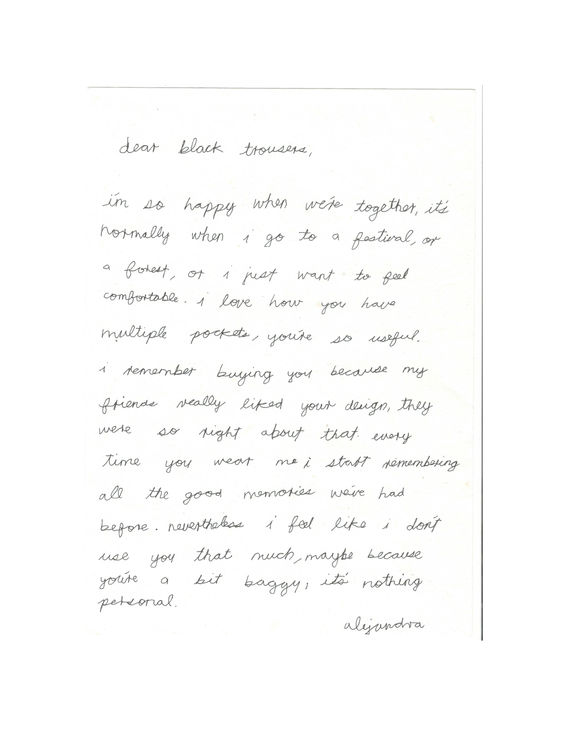 dear black trousers,
i'm so happy when we're together, it's
normally when i go to a festival, or
a forest, or i just want to feel
comfortable. i love how you have
multiple pockets, you're so useful.
i remember buying you because my
friends really liked your design, they
were so right about that. every
time you wear me i start remembering
all the good memories we've had
before. nevertheless i feel like i don't
use you that much, maybe because
you're a bit baggy; it's nothing
personal.
alejandra